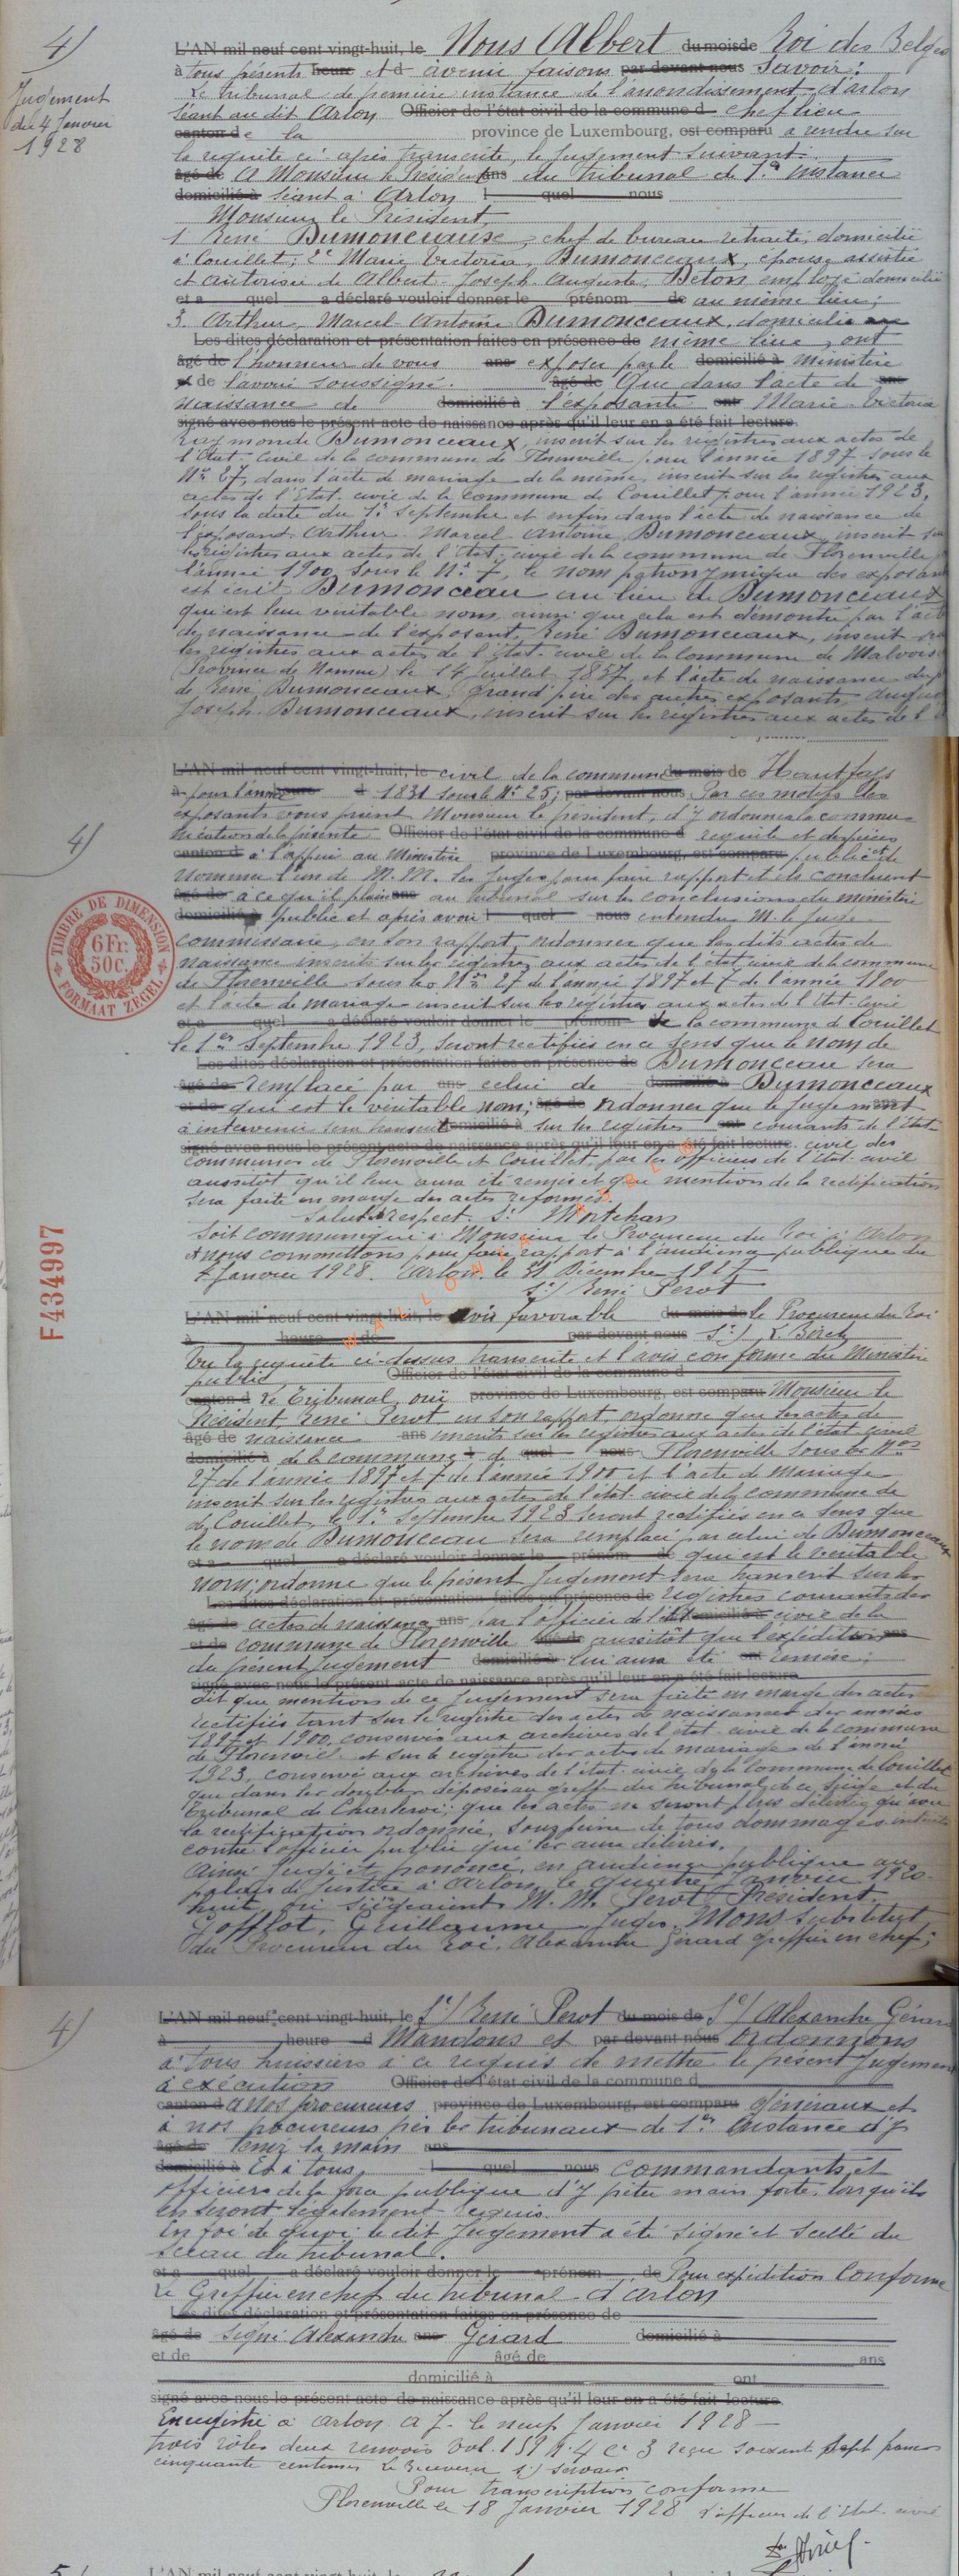 4)
Jugement
du 4 Janvier
1928
L'AN mil neuf cent vingt-huit, le Nous Albert du mois de Roi des Belges
à tous présents heure et d à venir faisons par devant nous savoir:
Le tribunal de première instance de l'arrondissement d'arlon
séant au dit Arlon Officier de l'état civil de la commune d chef lieu
canton de la province de Luxembourg, est comparu a rendu sur
la requête ci-après transcrite, le jugement suivant.
âgé de A Monsieur le Président ans du tribunal de 1e instance
domicilié à séant à Arlon l quel nous
Monsieur le Président,
1 René Dumonceaux, chef de bureau retraité, domicilié
à Couillet; 2e Marie Victoria, Dumonceaux, épouse assistée
et autorisée de Albert-Joseph-Auguste, Deton employé domicilié
et a quel a déclaré vouloir donner le prénom de au même lieu;
3. Arthur Marcel-Antoine Dumonceaux, domicilié
Les dites déclaration et présentation faites en présence de même lieu, ont
âgé de l'honneur de vous ans exposer par le domicilié à ministère
de l'avoué soussigné. âgé de Que dans l'acte de ans
naissance de domicilié à l'exposante ont Marie-Victoria
signé avec nous le présent acte de naissance après qu'il leur en a été fait lecture.
Raymonde Dumonceaux, inscrit sur les registres aux actes de
l'Etat-civil de la commune de Florenville pour l'année 1897 sous le
No 27, dans l'acte de mariage de la même, inscrit sur les registres aux
actes de l'Etat civil de la commune de Couillet pour l'année 1923,
sous la date du 1r septembre et enfin dans l'acte de naissance de
l'exposant Arthur-Marcel Antoine Dumonceaux, inscrit sur
les registres aux actes de l'état civil de la commune de Florenville
l'année 1900 sous le No 7, le nom patronymique des exposants
est écrit Dumonceau au lieu de Dumonceaux
qui est leur véritable nom, ainsi que cela est démontré par l'acte
de naissance de l'exposant, René Dumonceaux, inscrit sur
les registres aux actes de l'état civil de la commune de Malvoisin
(Province de Namur) le 14 juillet 1857 et l'acte de naissance du père
de René Dumonceaux, grand'père des autres exposants
Joseph Dumonceaux, inscrit sur les registres aux actes de l'é
4)
L'AN mil neuf cent vingt-huit, le civil de la commune du mois de Hautfays
à pour l'année heure d 1831 sous le No 25; par devant nous Par ces motifs les
exposants vous prient Monsieur le président, d'y ordonner la commu-
nication de la présente Officier de l'état civil de la commune d requête et des pièces
canton d à l'appui au Ministère province de Luxembourg, est comparu public et de
nommer l'un de M.M. les juges pour faire rapport et ils concluent
âgé de à ce qu'il plaise ans au tribunal sur les conclusions du ministère
domicilié à public et après avoir l quel nous entendu M. le juge
commissaire, en son rapport, ordonner que les dits actes de
naissance inscrits sur les registres aux actes de l'état civil de la commune
de Florenville sous les Nos 27 de l'année 1897 et 7 de l'année 1900
et l'acte de mariage inscrit sur les registres aux actes de l'état civil
et a quel a déclaré vouloir donner le prénom de la commune de Couillet
le 1er Septembre 1923, seront rectifiés en ce sens que le nom de
Les dites déclaration et présentation faites en présence de Dumonceau sera
âgé de remplacé par ans celui de domicilié à Dumonceaux
et de qui est le véritable nom; âgé de ordonner que le jugement ans
à intervenir sera transcrit domicilié à sur les registres ont courants de l'état
signé avec nous le présent acte de naissance après qu'il leur en a été fait lecture. civil des
communes de Florenville et Couillet par les officiers de l'état civil
aussitôt qu'il leur aura été remis et que mention de la rectification
sera faite en marge des actes réformés.
Salut & respect. S:
Soit communiqué à Monsieur le Procureur du Roi à Arlon
& nous commettons pour faire rapport à l'audience publique du
4 Janvier 1928. Arlon. le 31 Décembre 1927
S:/ René Perot
L'AN mil neuf cent vingt-huit, le avis favorable du mois de le Procureur du Roi
à heure de par devant nous S:/
Vu la requête ci-dessus transcrite et l'avis conforme du Ministère
public Officier de l'état civil de la commune d
canton d Le Tribunal, ouï province de Luxembourg, est comparu Monsieur le
Président René Perot en son rapport, ordonne que les actes de
âgé de naissance ans inscrits sur les registres aux actes de l'état civil
domicilié à de la commune l de quel nous Florenville sous les Nos
27 de l'année 1897 et 7 de l'année 1900 et l'acte de mariage
inscrit sur les registres aux actes de l'état civil de la commune de
de Couillet le 1r Septembre 1923 seront rectifiés en ce sens que
le nom de Dumonceau sera remplacé par celui de Dumonceaux
et a quel a déclaré vouloir donner le prénom de qui est le véritable
nom; ordonne que le présent jugement sera transcrit sur les
Les dites déclaration et présentation faites en présence de registres courants des
âgé de actes de naissance ans par l'officier de l'état domicilié à civil de la
et de commune de Florenville âgé de aussitôt que l'expédition ans
du présent jugement domicilié à lui aura été ont remise;
signé avec nous le présent acte de naissance après qu'il leur en a été fait lecture
dit que mention de ce jugement sera faite en marge des actes
rectifiés tant sur le registre des actes de naissances des années
1897 et 1900, conservés aux archives de l'état civil de la commune
de Florenville et sur le registre des actes de mariage de l'année
1923, conservé aux archives de l'état civil de la commune de Couillet
que dans les doubles déposés au greffe du tribunal de ce siège et du
tribunal de Charleroi; que les actes ne seront plus délivrés qu'avec
la rectification ordonnée, sous peine de tous dommages intérêts
contre l'officier public qui les aura délivrés.
Ainsi jugé et prononcé, en audience publique au
palais de justice à Arlon le quatre Janvier 1920
huit, où siégeaient M.M. Perot Président.
Gofflot, Guillaume Juges, Mons substitut
du Procureur du Roi. Alexandre Gérard greffier en chef;
TIMBRE DE DIMENSION
6 Fr.
50C.
FORMAAT ZEGEL
F434997
WALLONIA ASBL ©
4)
L'AN mil neuf cent vingt-huit, le Se/ René Perot du mois de Se/ Alexandre Gérard
à heure d Mandons et par devant nous ordonnons
à tous huissiers à ce requis de mettre le présent jugement
à exécution Officier de l'état civil de la commune d
canton d à nos procureurs province de Luxembourg, est comparu généraux et
à nos procureurs près les tribunaux de 1er instance d'y
âgé de tenir la main ans
domicilié à Et à tous l quel nous commandants et
officiers de la force publique d'y prêter main forte, lorsqu'ils
en seront légalement requis.
En foi de quoi le dit jugement a été signé et scellé du
sceau du tribunal.
et a quel a déclaré vouloir donner le prénom de Pour expédition conforme
Le Greffier en chef du tribunal d'arlon
Les dites déclaration et présentation faites en présence de
âgé de signé Alexandre ans Gérard domicilié à
et de âgé de ans
domicilié à ont
signé avec nous le présent acte de naissance après qu'il leur en a été fait lecture.
Enregistré à Arlon A J. le neuf Janvier 1928
trois rôles deux renvois vol. 159 f. 4 Ce 3 reçu soixante sept francs
cinquante centimes Le Receveur s)
Pour transcription conforme
Florenville le 18 Janvier 1928 L'officier de l'état civil
5/
L'AN mil neuf cent vingt-huit, le